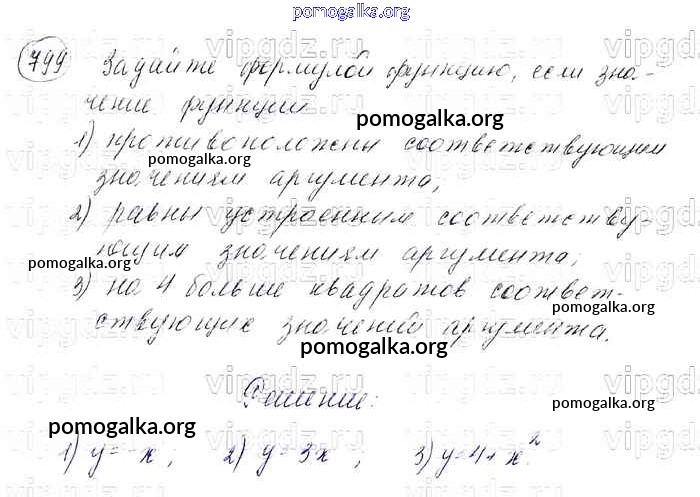 pomogalka.org
799 Задайте формулой функцию, если зна-
чение функции
pomogalka.org
1) противоположны соответствующим
pomogalka.org
значениям аргумента,
2) равны утроенным соответству-
ющим значениям аргумента,
pomogalka.org
3) на 4 больше квадратов соответ-
pomogalka.org
ствующих значений аргумента.
pomogalka.org
Решение:
pomogalka.org
pomogalka.org
1) y = -x ; 2) y = 3x ; 3) y = 4 + x²
vipgdz.ru